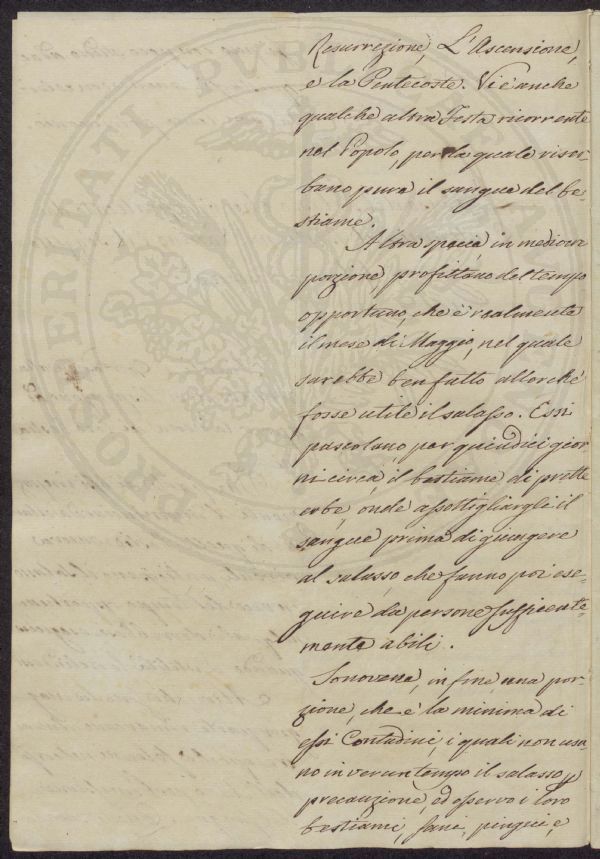 Resurrezione, L'Ascensione,
e la Pentecoste. Vi è anche
qualche altra Festa ricorrente
nel Popolo, per la quale riser-
bano pure il sangue del be-
stiame.
Altra specie, in mediocre
porzione, profittano del tempo
opportuno, che è realmente
il mese di Maggio, nel quale
sarebbe ben fatto allorché
fosse utile il salasso. Essi
pascolano per quindici gior-
ni circa il bestiame di prette
erbe, onde assottigliargli il
sangue prima di giungere
al salasso, che fanno poi ese-
guire da persone sufficiente-
mente abili.
Sonovene, in fine, una por-
zione, che è la minima di
essi Contadini, i quali non usa-
no in verun tempo il salasso p
precauzione, ed osservo i loro
bestiami, sani, pingui, e
PROSPERITATI PUBL